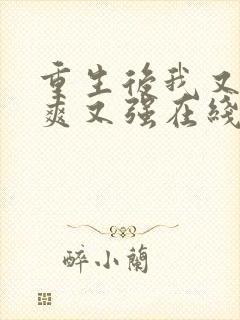 重生後我又
爽又强在綫
醉小蘭